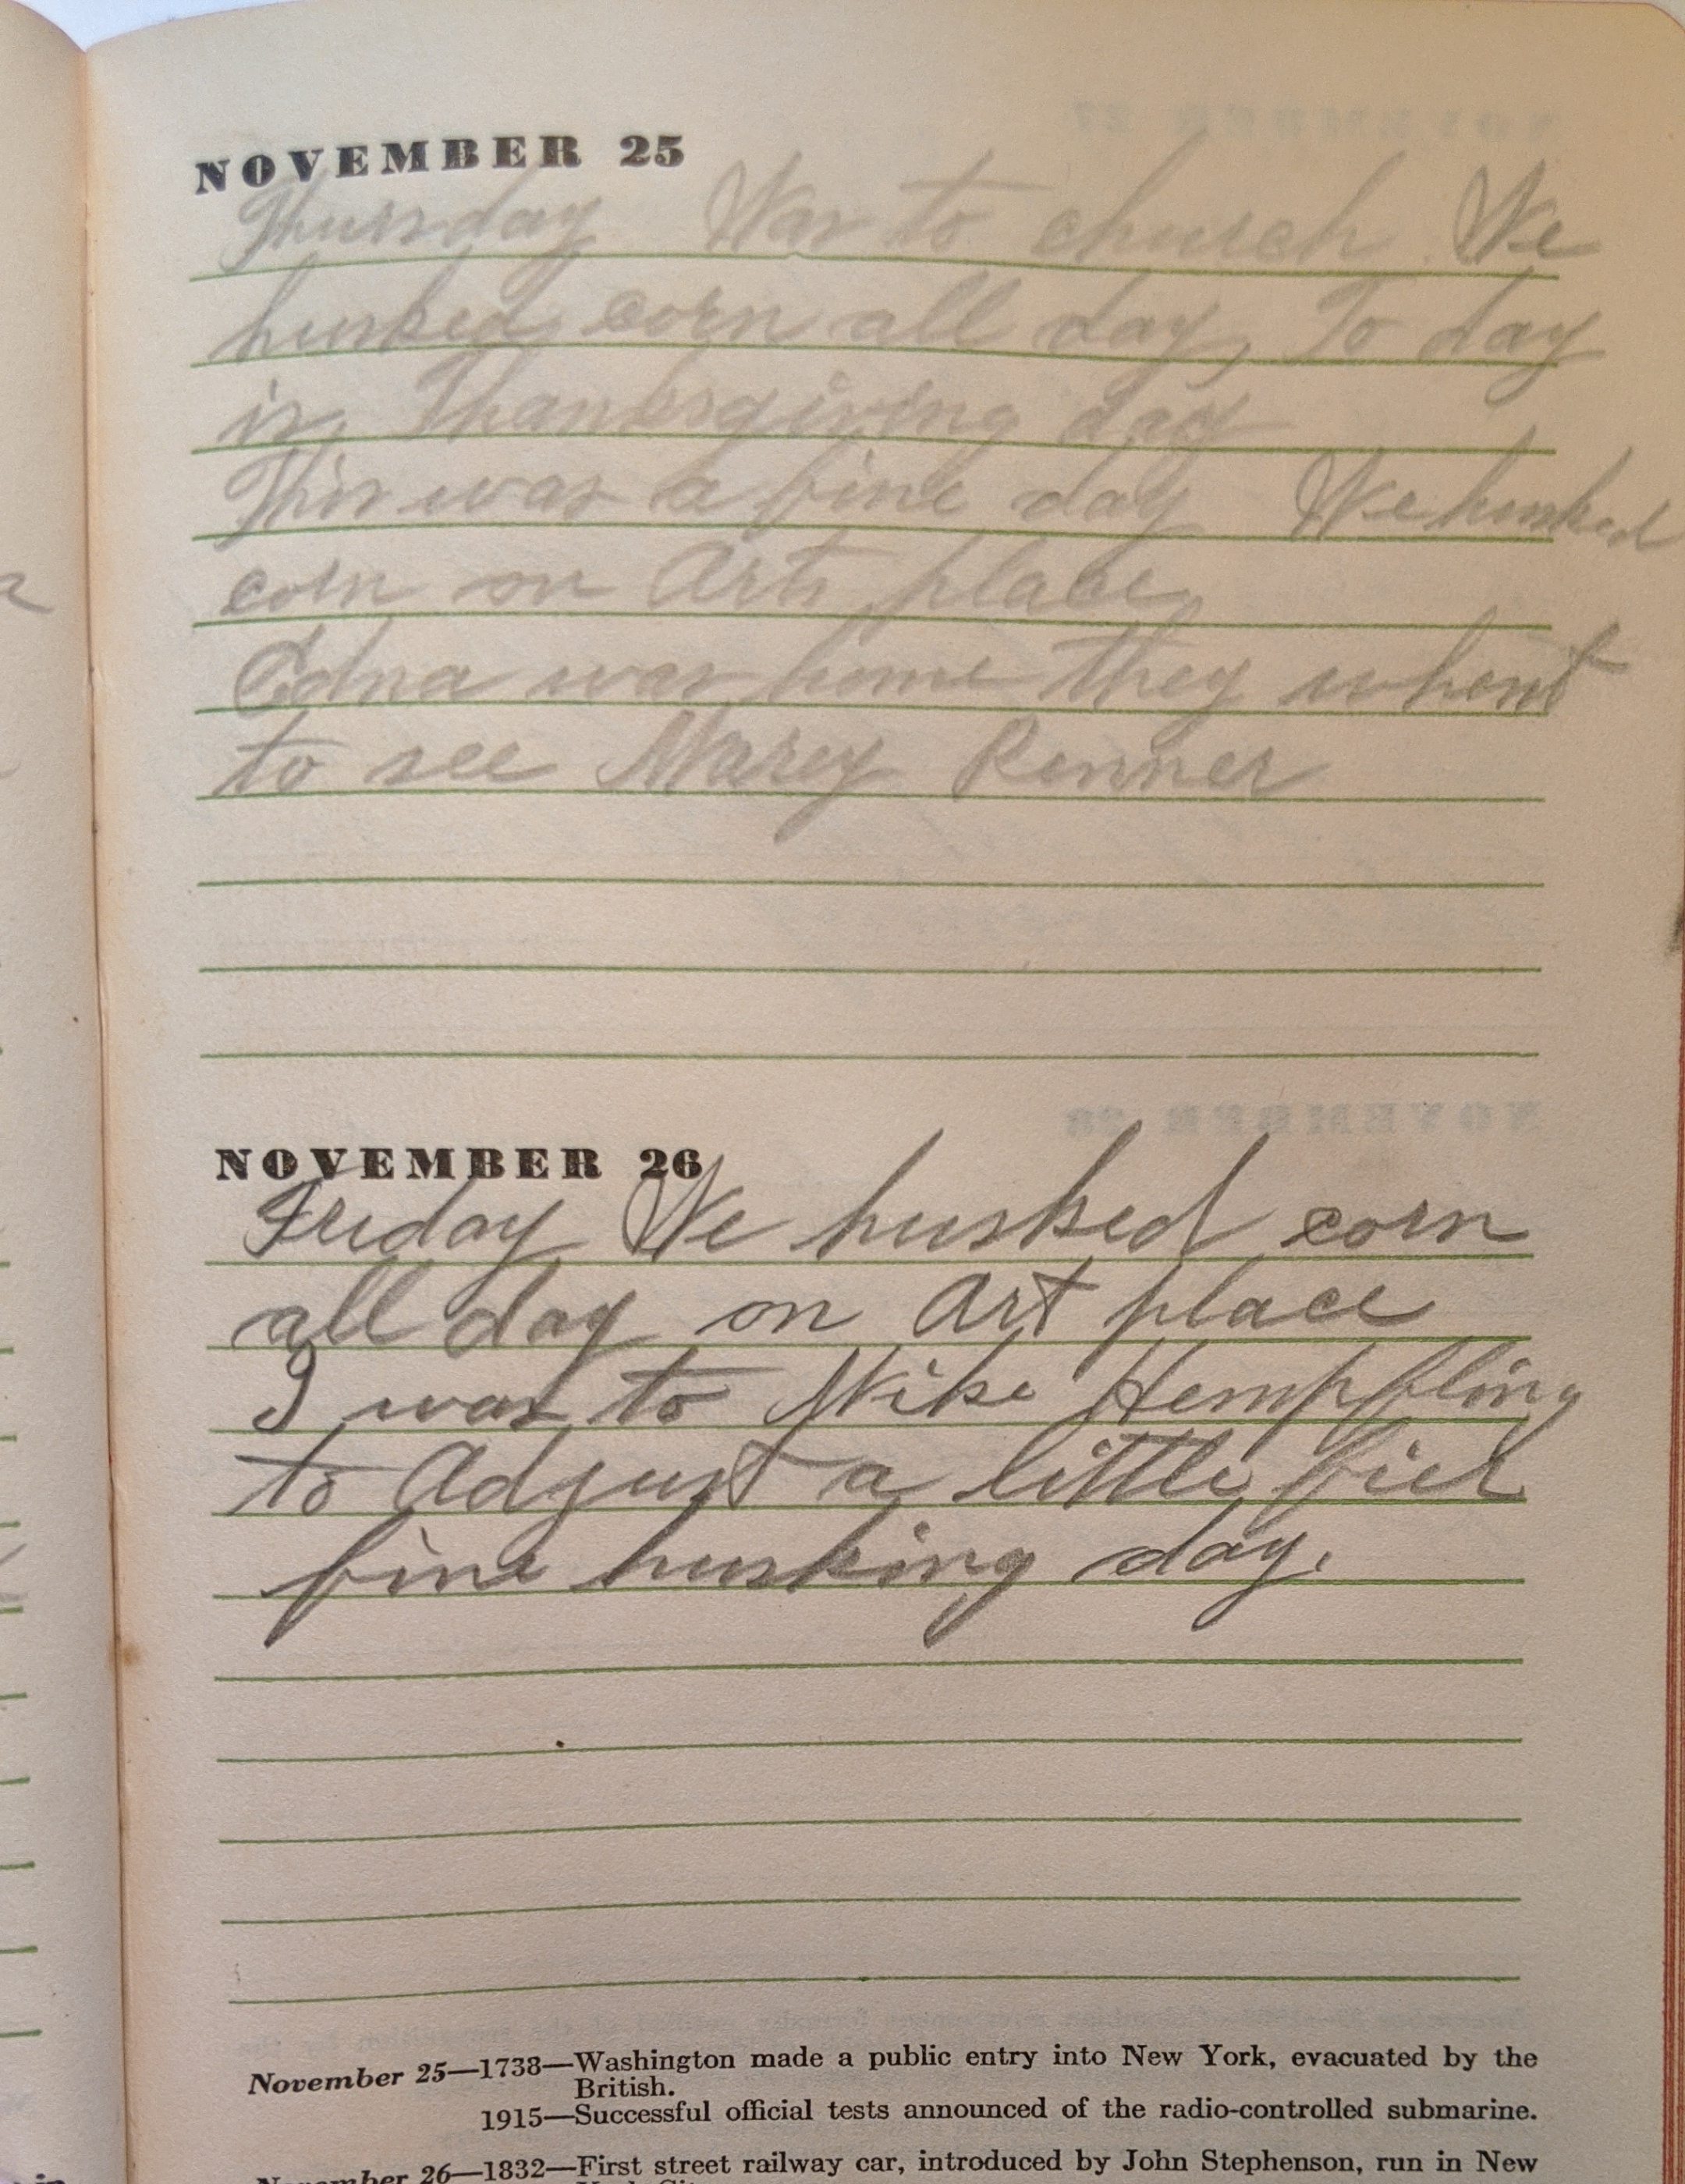 NOVEMBER 25
Thursday Was to church We
husked corn all day, To day
is Thanksgiving day
This was a fine day We husked
corn on Arts place
Edna was home they whent
to see Marey Renner
NOVEMBER 26
Friday We husked corn
all day on Art place
I was to Mike Hempfling
to Adjust a little fier
fine husking day.
November 25—1738—Washington made a public entry into New York, evacuated by the
British.
1915—Successful official tests announced of the radio-controlled submarine.
November 26—1832—First street railway car, introduced by John Stephenson, run in New